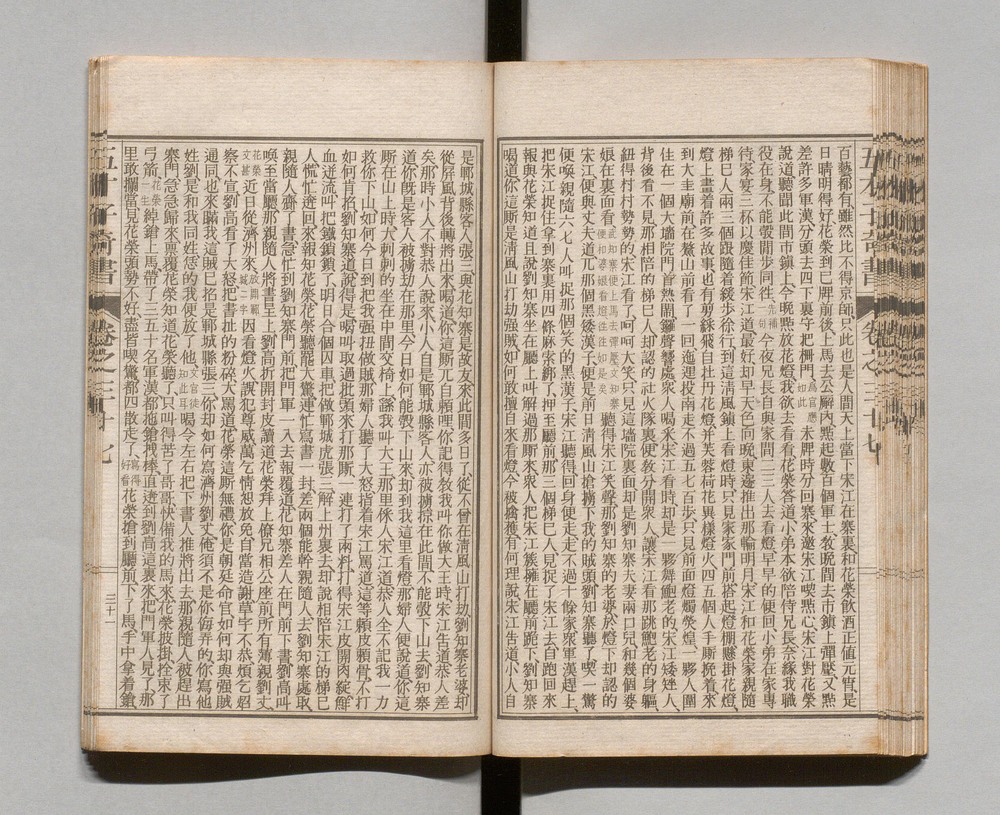 百藝都有雖然比不得京師只此也是人間天上當下宋江在寨裏和花榮飲酒正值元宵是
日晴明得好花榮到巳牌前後上馬去公廨內點起數百個軍士教晚間去市鎮上彈壓又點
差許多軍漢分頭去四下裏守把柵門為官應如此未牌時分回寨來邀宋江喫點心宋江對花榮
說道聽聞此間市鎮上今晚點放花燈我欲去看看花榮答道小弟本欲陪侍兄長奈緣我職
役在身不能彀閒步同往先補一句今夜兄長自與家間二三人去看燈早早的便回小弟在家專
待家宴三杯以慶佳節宋江道最好却早天色向晚東邊推出那輪明月宋江和花榮家親隨
梯巳人兩三個跟隨着緩步徐行到這清風鎮上看燈時只見家家門前搭起燈棚懸掛花燈
燈上畫着許多故事也有剪綵飛白牡丹花燈并芙蓉荷花異樣燈火四五個人手厮挽着來
到大王廟前在鰲山前看了一回迤邐投南走不過五七百步只見前面燈燭熒煌一夥人圍
住在一個大墻院門首熱鬧鑼聲響處衆人喝采宋江看時却是一夥舞鮑老的宋江矮矬人
背後看不見那相陪的梯巳人却認的社火隊裏便教分開衆人讓宋江看那跳鮑老的身軀
紐得村村勢勢的宋江看了呵呵大笑只見這墻院裏面却是劉知寨夫妻兩口兒和幾個婆
娘在裏面看聽得宋江笑聲那劉知寨的老婆於燈下却認的
宋江便與丈夫道兀那個黑矮漢子便是前日清風山搶擄下我的賊頭劉知寨聽了喫一驚
便喚親隨六七人叫捉那個笑的黑漢子宋江聽得回身便走走不過十餘家衆軍漢趕上
把宋江捉住拿到寨裏用四條麻索綁了押至廳前那三個梯巳人見捉了宋江去自跑回來
報與花榮知道且說劉知寨坐在廳上叫解過那厮來衆人把宋江簇擁在廳前跪下劉知寨
喝道你這厮是清風山打劫强賊如何敢擅自來看燈今被擒獲有何理說宋江告道小人自
是鄆城縣客人張三與花知寨是故友來此間多日了從不曾在清風山打劫劉知寨老婆却
從屏風背後轉將出來喝道你這厮兀自賴哩你記得教我叫你做大王時宋江告道恭人差
矣那時小人不對恭人說來小人自是鄆城縣客人亦被擄掠在此間不能彀下山去劉知寨
道你旣是客人被擄劫在那里今日如何能彀下山來却到我這里看燈那婦人便說道你這
厮在山上時大剌剌的坐在中間交椅上由我叫大王那里倸人宋江道恭人全不記我一力
救你下山如何今日到把我强扭做賊那婦人聽了大怒指着宋江罵道這等賴皮賴骨不打
如何肯招劉知寨道說得是喝叫取過批頭來打那厮一連打了兩料打得宋江皮開肉綻鮮
血迸流叫把鐵鎖鎖了明日合個囚車把做鄆城虎張三解上州裏去却說相陪宋江的梯巳
人慌忙逩回來報知花榮花榮聽罷大驚連忙寫書一封差兩個能幹親隨人去劉知寨處取
親隨人齎了書急忙到劉知寨門前把門軍一入去報覆道花知寨差人在門前下書劉高叫
喚至當廳那親隨人將書呈上劉高折開封皮讀道花榮拜上僚兄相公座前所有薄親劉丈
花榮文甚近日從濟州來放開鄆城二字因看燈火誤犯尊威萬乞情恕放免自當造謝草字不恭煩乞炤
察不宣劉高看了大怒把書扯的粉碎大罵道花榮這厮無禮你是朝廷命官如何却與强賊
通同也來瞞我這賊巳招是鄆城縣張三你却如何寫濟州劉丈俺須不是你侮弄的你寫他
姓劉是和我同姓恁的我便放了他文官徒知此耳喝令左右把下書人推將出去那親隨人被趕出
寨門急急歸來稟覆花榮知道花榮聽了只叫得苦了哥哥快備我的馬來花榮披掛拴束了
弓箭花榮一生綽鎗上馬帶了三五十名軍漢都拖鎗拽棒直逩到劉高這裏來把門軍人見了那
里敢攔當見花榮頭勢不好盡皆喫驚都四散走了寫得好看花榮搶到廳前下了馬手中拿着鎗
卷之三十七
三十一